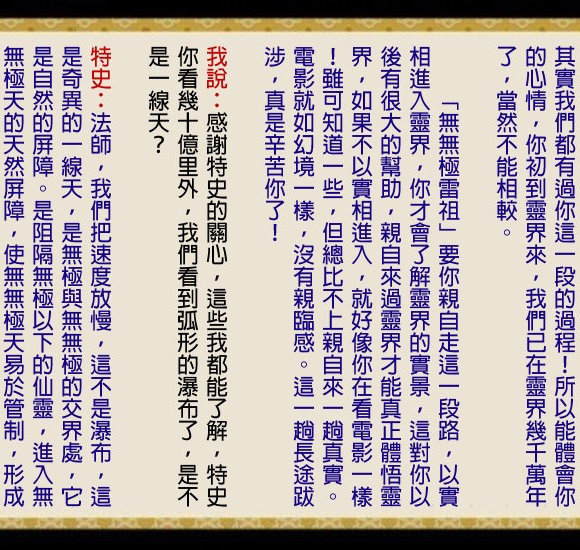 其實我們都有過你這一段的過程！所以能體會你
的心情，你初到靈界來，我們已在靈界幾千萬年
了，當然不能相較。
「無無極雷祖」要你親自走這一段路，以實
相進入靈界，你才會了解靈界的實景，這對你以
後有很大的幫助，親自來過靈界才能真正體悟靈
界，如果不以實相進入，就好像你在看電影一樣
！雖可知道一些，但總比不上親自來一趟真實。
電影就如幻境一樣，沒有親臨感。這一趟長途跋
涉，真是辛苦你了！
我說：感謝特史的關心，這些我都能了解，特史
你看幾十億里外，我們看到弧形的瀑布了，是不
是一線天？
特史：法師，我們把速度放慢，這不是瀑布，這
是奇異的一線天，是無極與無無極的交界處，它
是自然的屏障。是阻隔無極以下的仙靈，進入無
無極天的天然屏障，使無無極天易於管制，形成